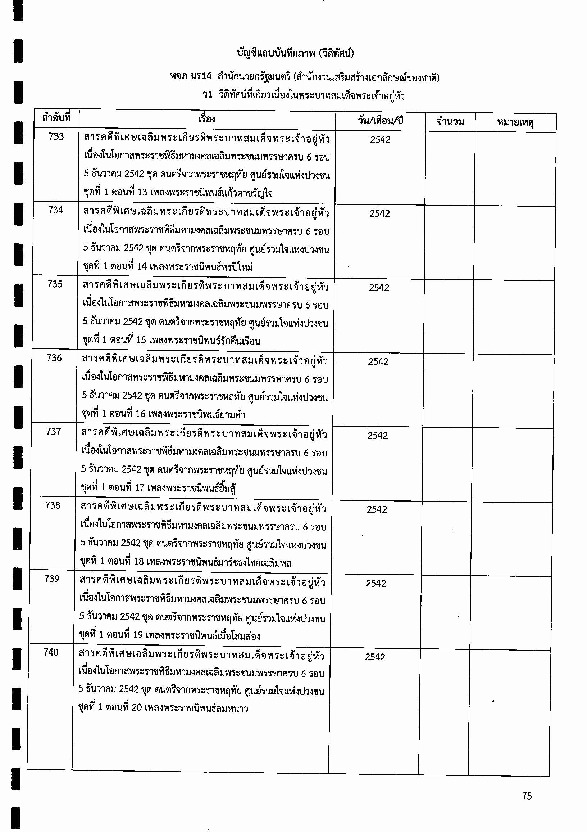 บัญชีแถบบันทึกภาพ (วีดิทัศน์)
หจภ นร14 สำนักนายกรัฐมนตรี (สำนักงานเสริมสร้างเอกลักษณ์ของชาติ)
ว1 วีดิทัศน์ที่เกี่ยวเนื่องในพระบาทสมเด็จพระเจ้าอยู่หัว
ลำดับที่ เรื่อง วัน/เดือน/ปี จำนวน หมายเหตุ
733 สารคดีพิเศษเฉลิมพระเกียรติพระบาทสมเด็จพระเจ้าอยู่หัว 2542
เนื่องในโอกาสพระราชพิธีมหามงคลเฉลิมพระชนมพรรษาครบ 6 รอบ
5 ธันวาคม 2542 ชุด ดนตรีจากพระราชหฤทัย ศูนย์รวมใจแห่งปวงชน
ชุดที่ 1 ตอนที่ 13 เพลงพระราชนิพนธ์แก้วตาขวัญใจ
734 สารคดีพิเศษเฉลิมพระเกียรติพระบาทสมเด็จพระเจ้าอยู่หัว 2542
เนื่องในโอกาสพระราชพิธีมหามงคลเฉลิมพระชนมพรรษาครบ 6 รอบ
5 ธันวาคม 2542 ชุด ดนตรีจากพระราชหฤทัย ศูนย์รวมใจแห่งปวงชน
ชุดที่ 1 ตอนที่ 14 เพลงพระราชนิพนธ์พรปีใหม่
735 สารคดีพิเศษเฉลิมพระเกียรติพระบาทสมเด็จพระเจ้าอยู่หัว 2542
เนื่องในโอกาสพระราชพิธีมหามงคลเฉลิมพระชนมพรรษาครบ 6 รอบ
5 ธันวาคม 2542 ชุด ดนตรีจากพระราชหฤทัย ศูนย์รวมใจแห่งปวงชน
ชุดที่ 1 ตอนที่ 15 เพลงพระราชนิพนธ์รักคืนเรือน
736 สารคดีพิเศษเฉลิมพระเกียรติพระบาทสมเด็จพระเจ้าอยู่หัว 2542
เนื่องในโอกาสพระราชพิธีมหามงคลเฉลิมพระชนมพรรษาครบ 6 รอบ
5 ธันวาคม 2542 ชุด ดนตรีจากพระราชหฤทัย ศูนย์รวมใจแห่งปวงชน
ชุดที่ 1 ตอนที่ 16 เพลงพระราชนิพนธ์ยามค่ำ
737 สารคดีพิเศษเฉลิมพระเกียรติพระบาทสมเด็จพระเจ้าอยู่หัว 2542
เนื่องในโอกาสพระราชพิธีมหามงคลเฉลิมพระชนมพรรษาครบ 6 รอบ
5 ธันวาคม 2542 ชุด ดนตรีจากพระราชหฤทัย ศูนย์รวมใจแห่งปวงชน
ชุดที่ 1 ตอนที่ 17 เพลงพระราชนิพนธ์ยิ้มสู้
738 สารคดีพิเศษเฉลิมพระเกียรติพระบาทสมเด็จพระเจ้าอยู่หัว 2542
เนื่องในโอกาสพระราชพิธีมหามงคลเฉลิมพระชนมพรรษาครบ 6 รอบ
5 ธันวาคม 2542 ชุด ดนตรีจากพระราชหฤทัย ศูนย์รวมใจแห่งปวงชน
ชุดที่ 1 ตอนที่ 18 เพลงพระราชนิพนธ์มาร์ชธงไชยเฉลิมพล
739 สารคดีพิเศษเฉลิมพระเกียรติพระบาทสมเด็จพระเจ้าอยู่หัว 2542
เนื่องในโอกาสพระราชพิธีมหามงคลเฉลิมพระชนมพรรษาครบ 6 รอบ
5 ธันวาคม 2542 ชุด ดนตรีจากพระราชหฤทัย ศูนย์รวมใจแห่งปวงชน
ชุดที่ 1 ตอนที่ 19 เพลงพระราชนิพนธ์เมื่อโสมส่อง
740 สารคดีพิเศษเฉลิมพระเกียรติพระบาทสมเด็จพระเจ้าอยู่หัว 2542
เนื่องในโอกาสพระราชพิธีมหามงคลเฉลิมพระชนมพรรษาครบ 6 รอบ
5 ธันวาคม 2542 ชุด ดนตรีจากพระราชหฤทัย ศูนย์รวมใจแห่งปวงชน
ชุดที่ 1 ตอนที่ 20 เพลงพระราชนิพนธ์ลมหนาว
75